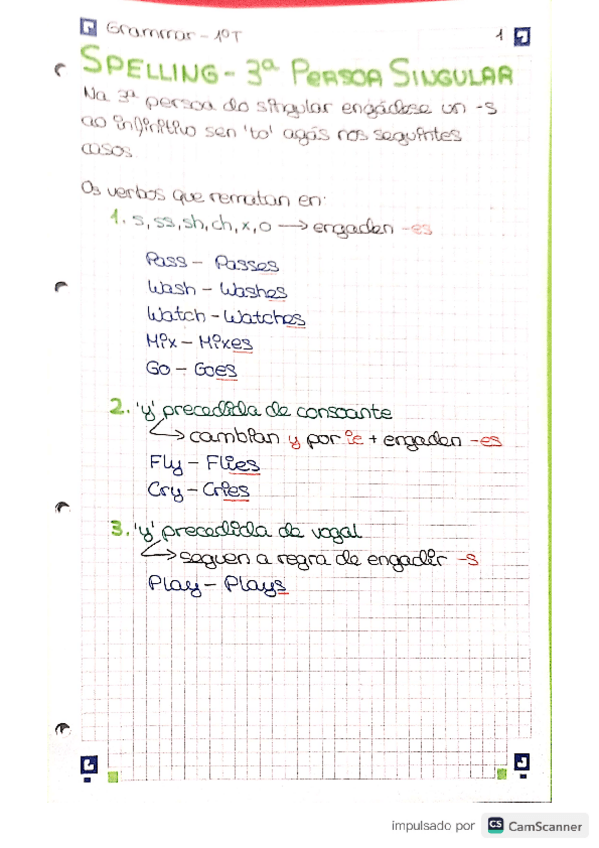 Grammar - 1ºT
1
SPELLING - 3ª PERSOA SINGULAR
Na 3ª persoa do singular engádese un -s
ao infinitivo sen 'to' agás nos seguintes
casos.
Os verbos que rematan en:
1. s, ss, sh, ch, x, o → engaden -es
Pass - Passes
Wash - Washes
Watch - Watches
Mix - Mixes
Go - Goes
2. 'y' precedida de consoante
→ cambian y por ie + engaden -es
Fly - Flies
Cry - Cries
3. 'y' precedida de vogal
→ seguen a regra de engadir -s
Play - Plays
impulsado por CS CamScanner